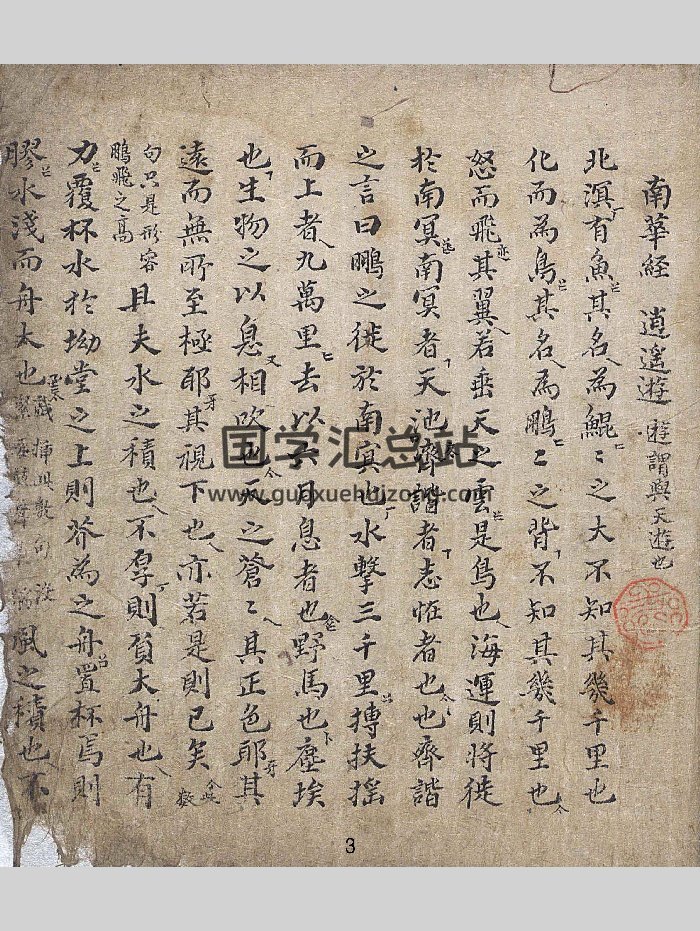 南華経 逍遙遊 遊謂與天遊也
北溟有魚其名為鯤〻之大不知其幾千里也
化而為鳥其名為鵬〻之背不知其幾千里也
怒而飛其翼若垂天之雲是鳥也海運則將徙
於南冥南冥者天池齊諧者志恠者也也齊諧
之言曰鵬之徙於南冥也水擊三千里摶扶揺
而上者九萬里去以六月息者也野馬也塵埃
也生物之以息相吹也天之蒼〻其正色耶其
遠而無所至極耶其視下也亦若是則已矣
句只是形容
鵬飛之高
且夫水之積也不厚則負大舟也有
力覆杯水於坳堂之上則芥為之舟置杯焉則
膠水淺而舟大也
風之積也不
国学汇总站
www.guoxuehuizong.com
3